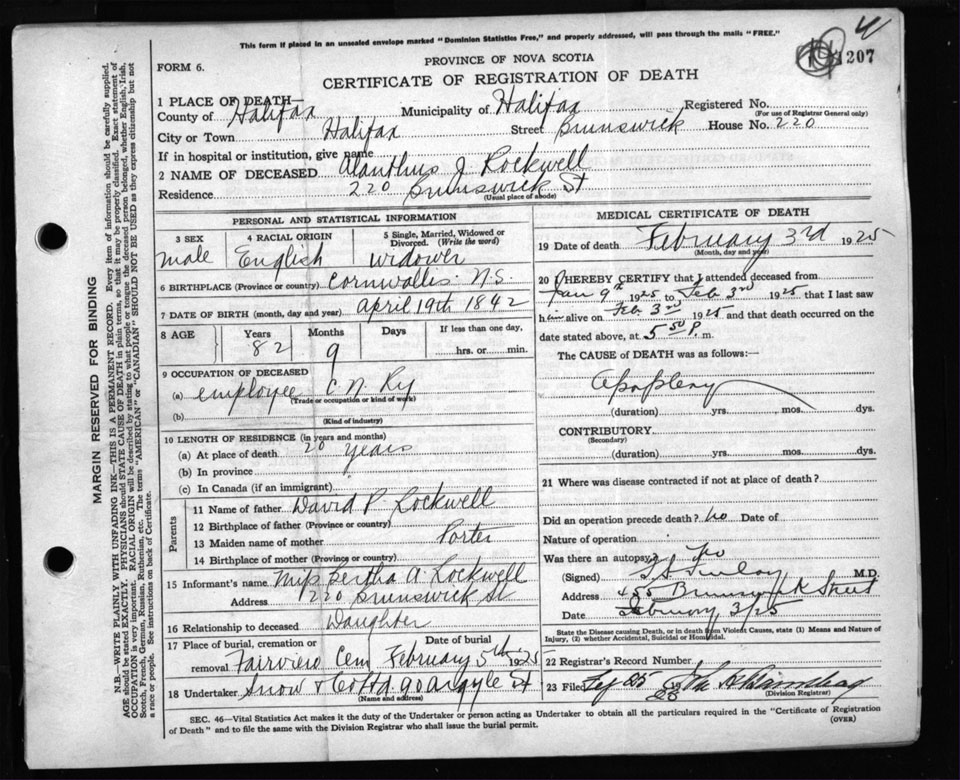 This form if placed in an unsealed envelope marked "Dominion Statistics Free," and properly addressed, will pass through the mails "FREE."
1207
FORM 6.
PROVINCE OF NOVA SCOTIA
CERTIFICATE OF REGISTRATION OF DEATH
1 PLACE OF DEATH—
County of Halifax Municipality of Halifax Registered No.
(For use of Registrar General only)
City or Town Halifax Street Brunswick House No. 220
If in hospital or institution, give name
2 NAME OF DECEASED Alanthus J. Rockwell
Residence 220 Brunswick St
(Usual place of abode)
PERSONAL AND STATISTICAL INFORMATION
3 SEX 4 RACIAL ORIGIN 5 Single, Married, Widowed or Divorced. (Write the word)
male English widower
6 BIRTHPLACE (Province or country) Cornwallis N.S.
7 DATE OF BIRTH (month, day and year) April 19th 1842
8 AGE Years Months Days If less than one day,
82 9 hrs. or min.
9 OCCUPATION OF DECEASED
(a) employee C. N. Ry
(Trade or occupation or kind of work)
(b)
(Kind of industry)
10 LENGTH OF RESIDENCE (in years and months)
(a) At place of death 20 years
(b) In province
(c) In Canada (if an immigrant)
Parents
11 Name of father David P. Rockwell
12 Birthplace of father (Province or country)
13 Maiden name of mother Porter
14 Birthplace of mother (Province or country)
15 Informant's name Miss Bertha A. Rockwell
Address 220 Brunswick St
16 Relationship to deceased Daughter
17 Place of burial, cremation or removal Date of burial
Fairview Cem February 5th 1925
18 Undertaker Snow & Co Ltd 90 Argyle St
(Name and address)
MEDICAL CERTIFICATE OF DEATH
19 Date of death February 3rd 1925
(Month, day and year)
20 I HEREBY CERTIFY that I attended deceased from
Jan 9th 1925 to Feb 3rd 1925 that I last saw
him alive on Feb 3rd 1925 and that death occurred on the
date stated above, at 5 50 P. m.
The CAUSE of DEATH was as follows:—
Apoplexy
(duration) yrs. mos. dys.
CONTRIBUTORY
(Secondary)
(duration) yrs. mos. dys.
21 Where was disease contracted if not at place of death?
Did an operation precede death? no Date of
Nature of operation
Was there an autopsy? no
(Signed) Finlay M.D.
Address 455 Brunswick Street
Date February 3/25
State the Disease causing Death, or in death from Violent Causes, state (1) Means and Nature of
Injury, (2) whether Accidental, Suicidal or Homicidal.
22 Registrar's Record Number
23 Filed
(Division Registrar)
SEC. 46—Vital Statistics Act makes it the duty of the Undertaker or person acting as Undertaker to obtain all the particulars required in the "Certificate of Registration
of Death" and to file the same with the Division Registrar who shall issue the burial permit.
(OVER)
MARGIN RESERVED FOR BINDING
N.B.—WRITE PLAINLY WITH UNFADING INK—THIS IS A PERMANENT RECORD. Every item of information should be carefully supplied.
AGE should be stated EXACTLY. PHYSICIANS should STATE CAUSE OF DEATH in plain terms, so that it may be properly classified. Exact statement of
OCCUPATION is very important. RACIAL ORIGIN will be described by stating to what people or tongue the deceased person belonged, whether English, Irish,
Scotch, French, German, Russian, Ruthenian, etc. The terms "AMERICAN" or "CANADIAN" SHOULD NOT BE USED as they express citizenship but not
a race or people. See instructions on back of Certificate.